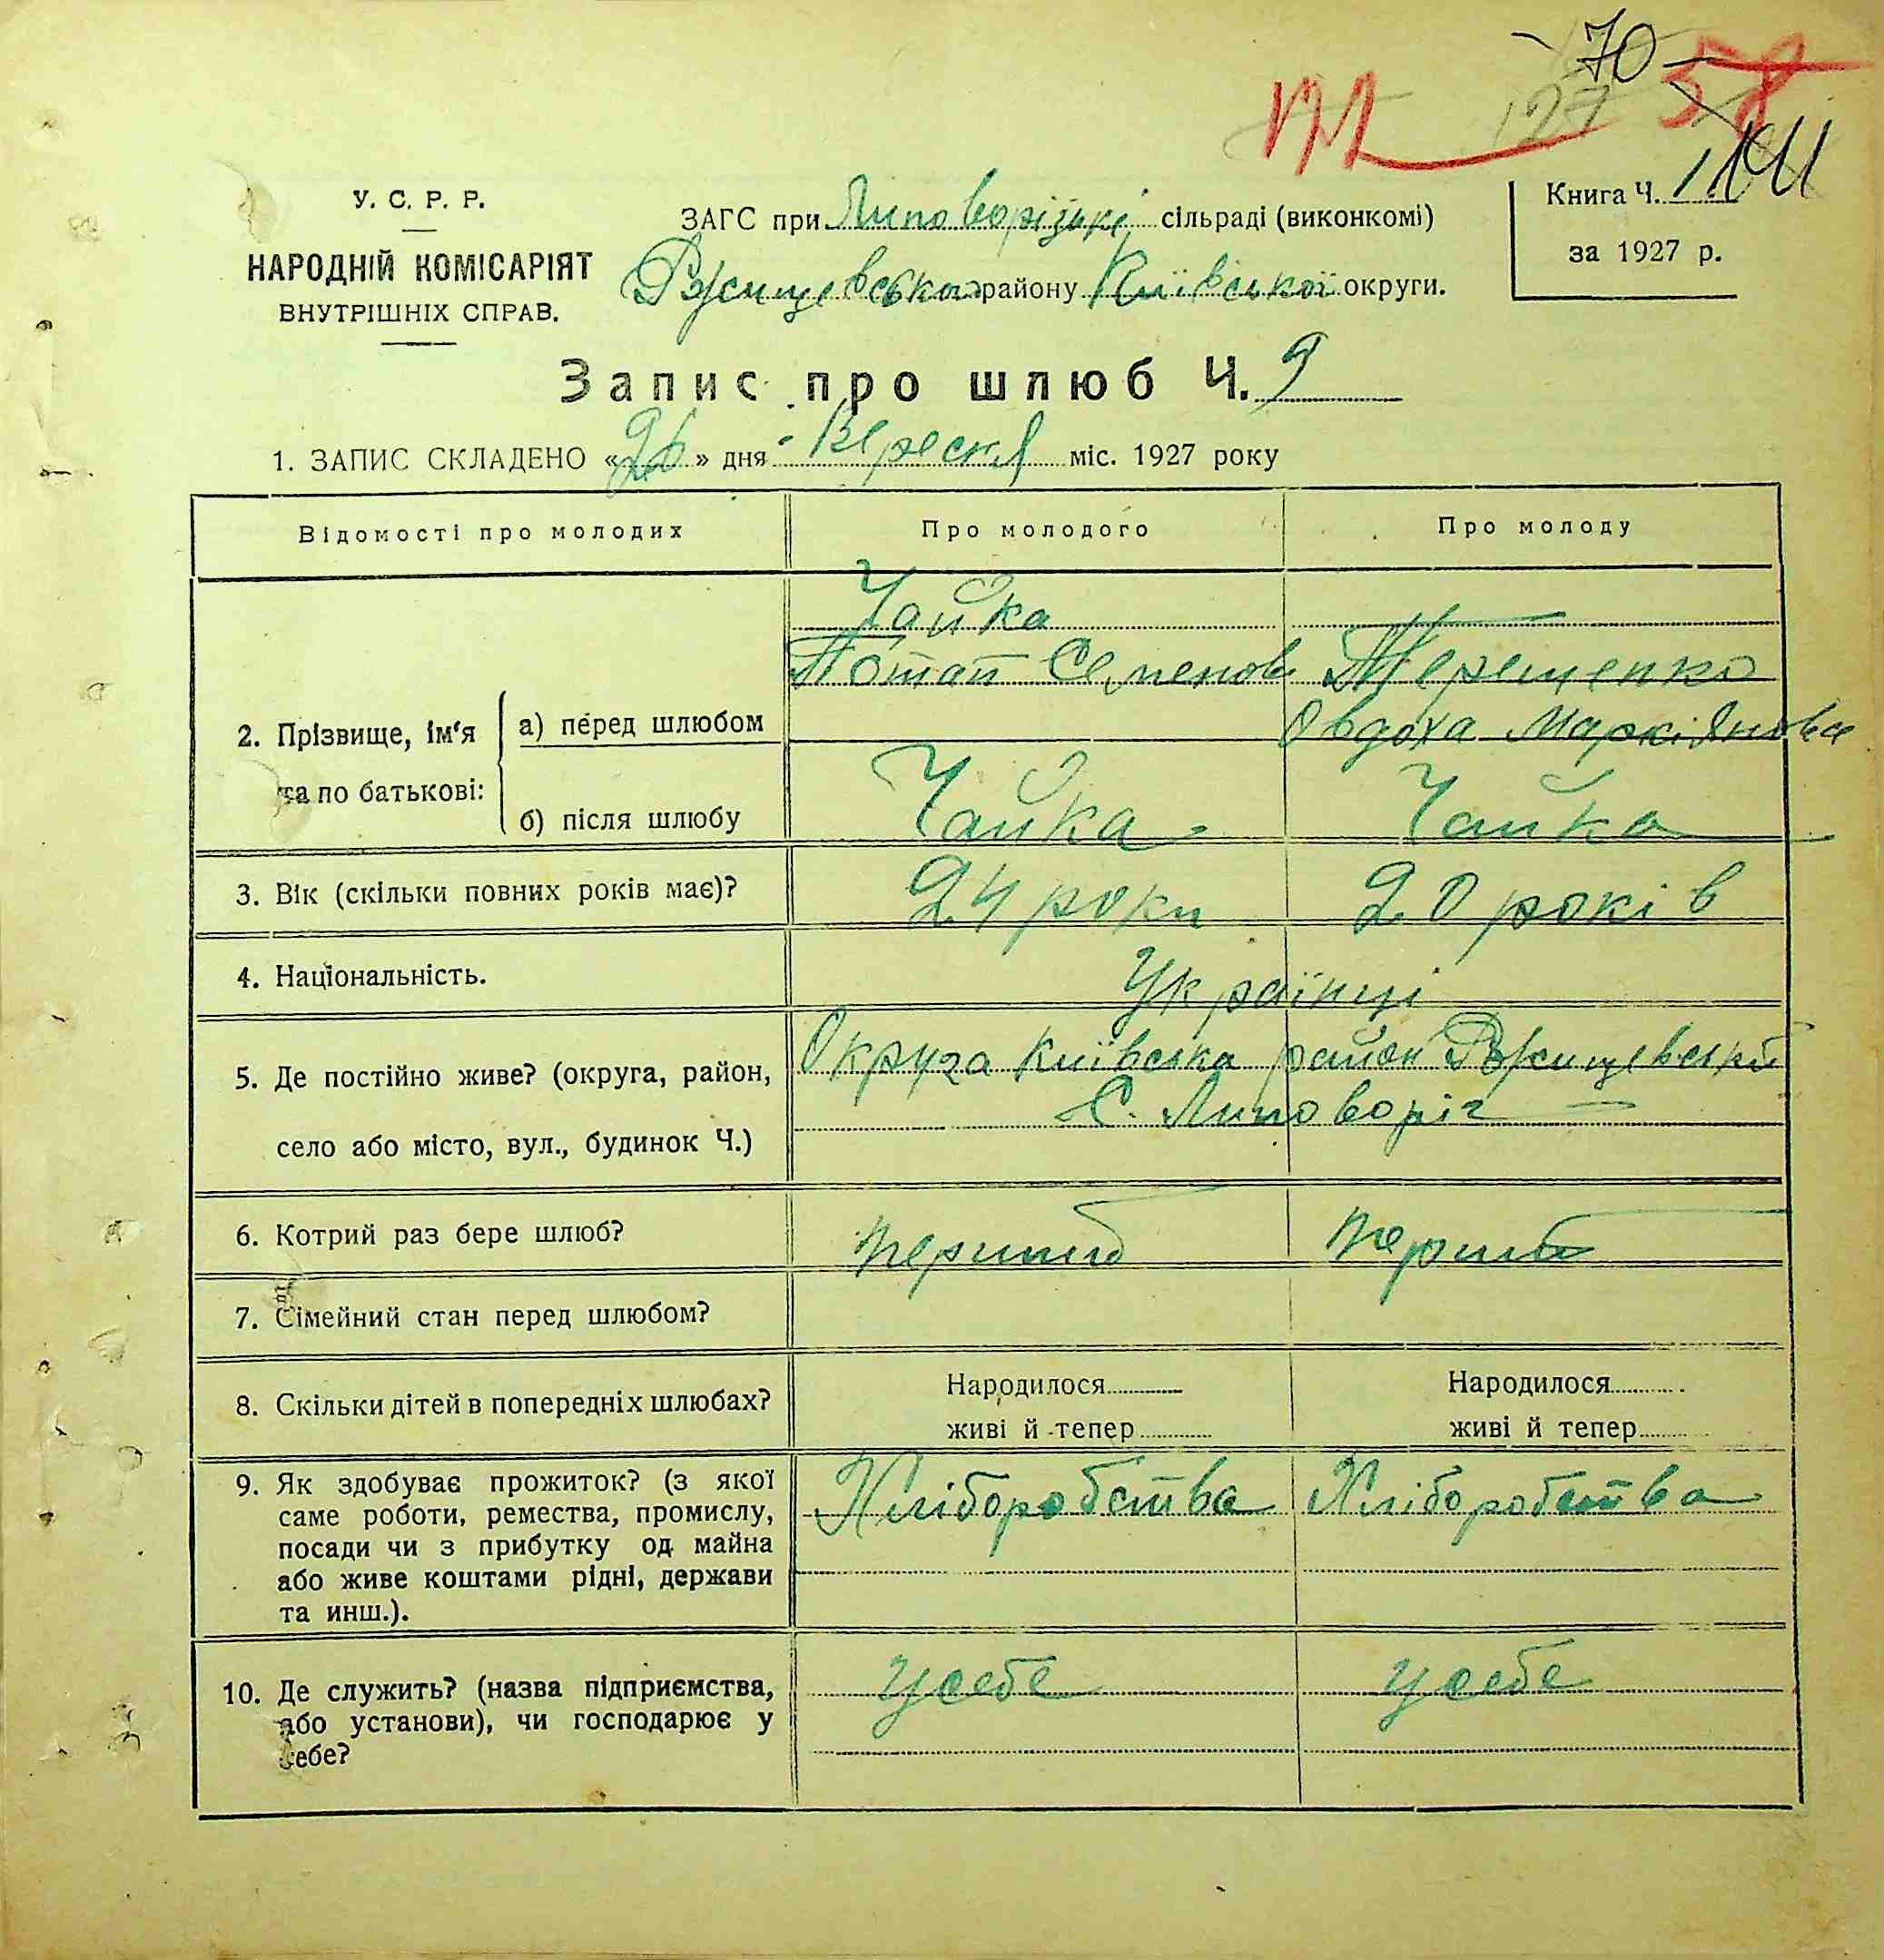 70
127
58
171
141
У. С. Р. Р.
НАРОДНІЙ КОМІСАРІЯТ
ВНУТРІШНІХ СПРАВ.
ЗАГС при Липоворізькі сільраді (виконкомі)
Ржищевського району Київської округи.
Книга Ч. 1
за 1927 р.
Запис про шлюб Ч. 9
1. ЗАПИС СКЛАДЕНО «26» дня Вересня міс. 1927 року
Відомості про молодих
Про молодого
Про молоду
2. Прізвище, ім'я та по батькові:
а) перед шлюбом
Чайка
Потап Семенов
Терещенко
Овдоха Маркіянова
б) після шлюбу
Чайка
Чайка
3. Вік (скільки повних років має)?
24 роки
20 років
4. Національність.
Українці
5. Де постійно живе? (округа, район,
село або місто, вул., будинок Ч.)
Округа Київська район Ржищевський
С. Липоворіг
6. Котрий раз бере шлюб?
перший
перший
7. Сімейний стан перед шлюбом?
8. Скільки дітей в попередніх шлюбах?
Народилося
живі й тепер
Народилося
живі й тепер
9. Як здобуває прожиток? (з якої
саме роботи, ремества, промислу,
посади чи з прибутку од майна
або живе коштами рідні, держави
та инш.).
Хліборобства
Хліборобства
10. Де служить? (назва підприємства,
або установи), чи господарює у
себе?
у себе
у себе